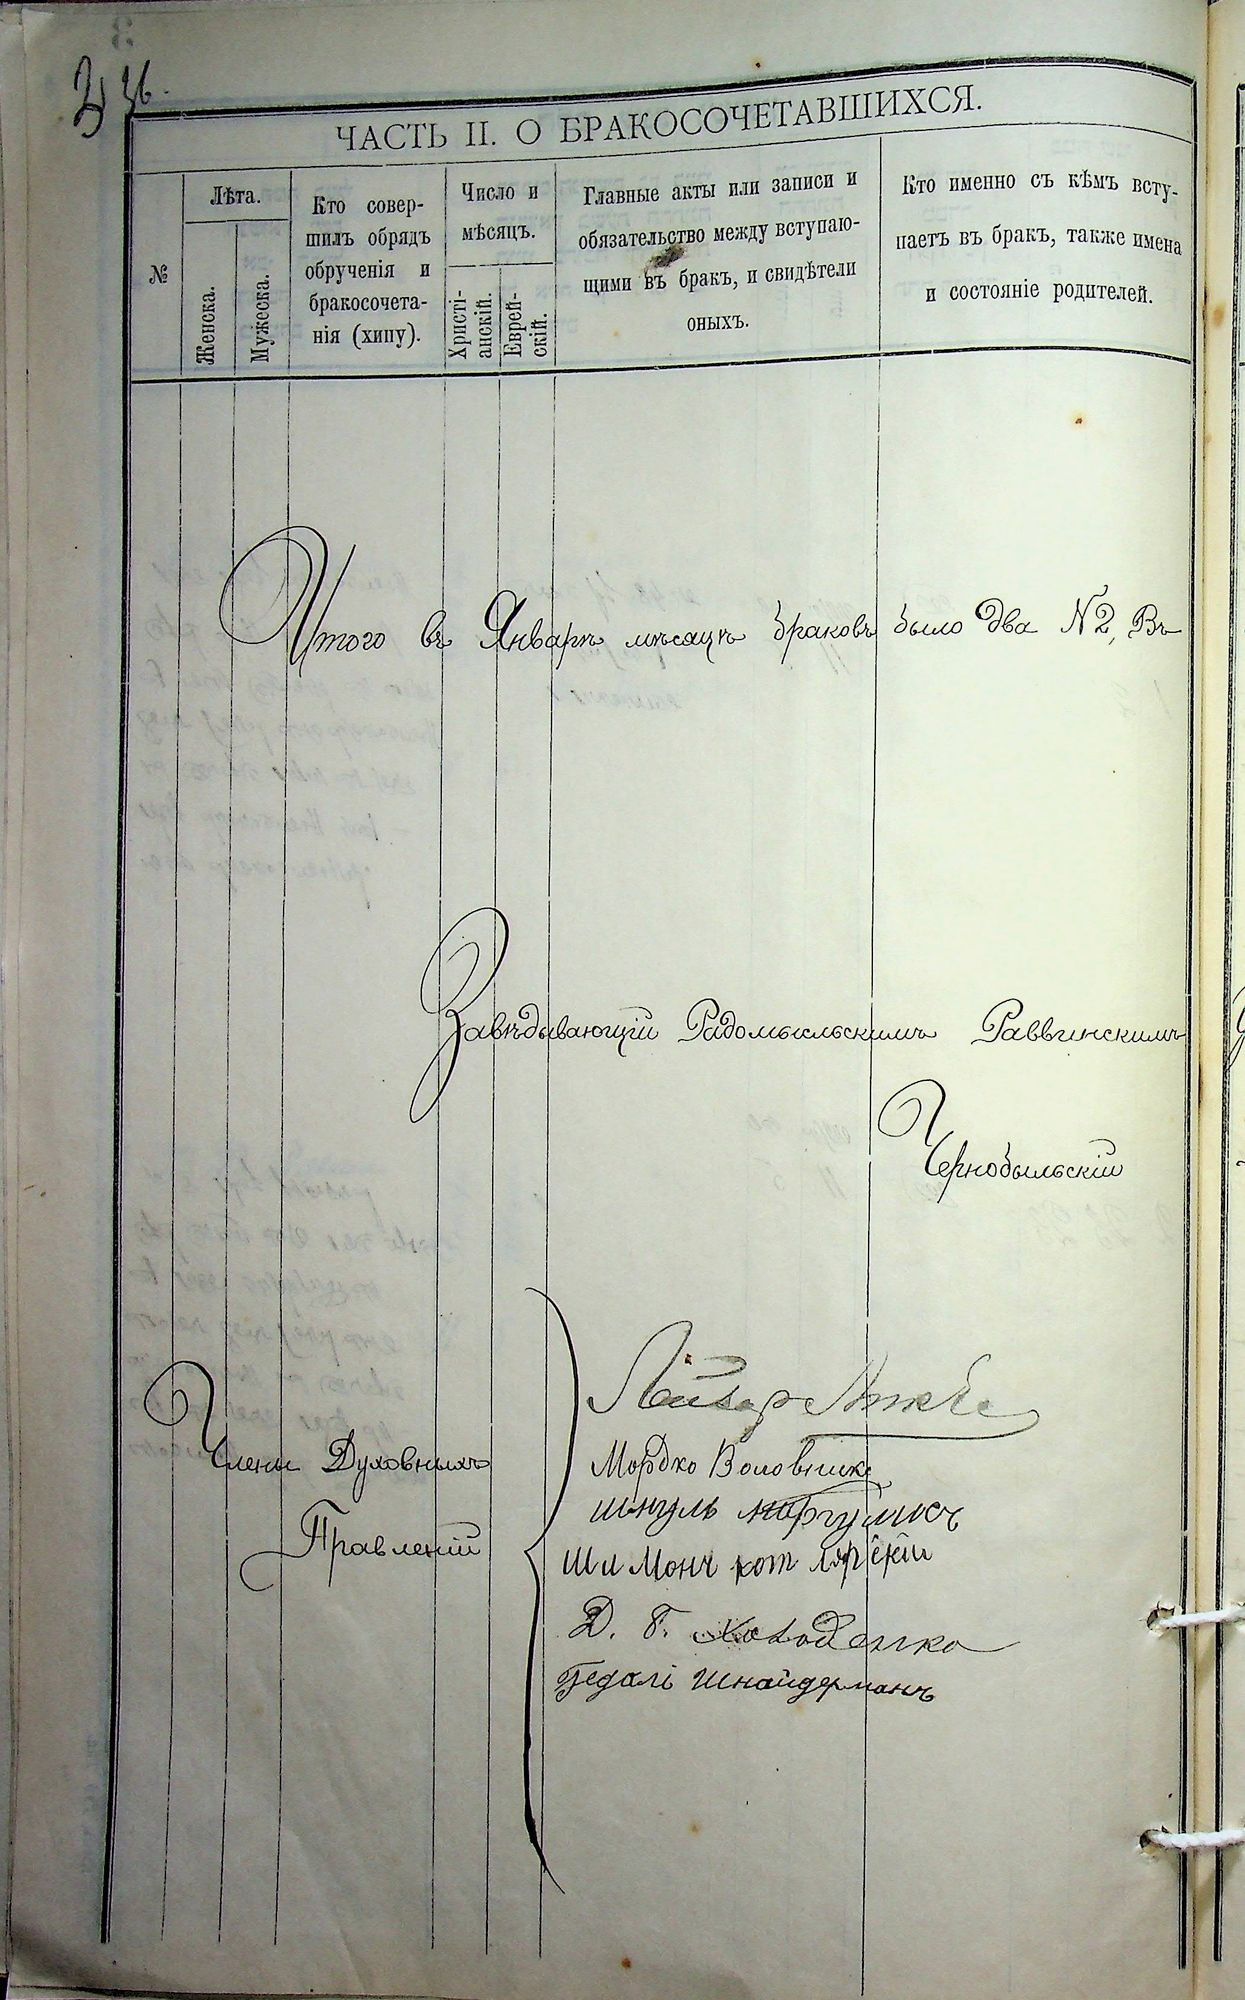 3 зв.
ЧАСТЬ II. О БРАКОСОЧЕТАВШИХСЯ.
№
Лѣта.
Женска.
Мужеска.
Кто совер-
шилъ обрядъ
обрученія и
бракосочета-
нія (хипу).
Число и
мѣсяцъ.
Христі-
анскій.
Еврей-
скій.
Главные акты или записи и
обязательство между вступаю-
щими въ бракъ, и свидѣтели
оныхъ.
Кто именно съ кѣмъ всту-
паетъ въ бракъ, также имена
и состояніе родителей.
Итого въ Январѣ мѣсяцѣ браковъ было два №2, Въ
Завѣдывающій Радомысльскимъ Раввинскимъ
Чернобыльскій
Члены Духовныхъ
Правленій
Лейзер
Мордко Воловник
шмуль маргулисъ
Шимонъ котлярскій
Д. Г. Холоденко
Гедалі Шнайдерманъ